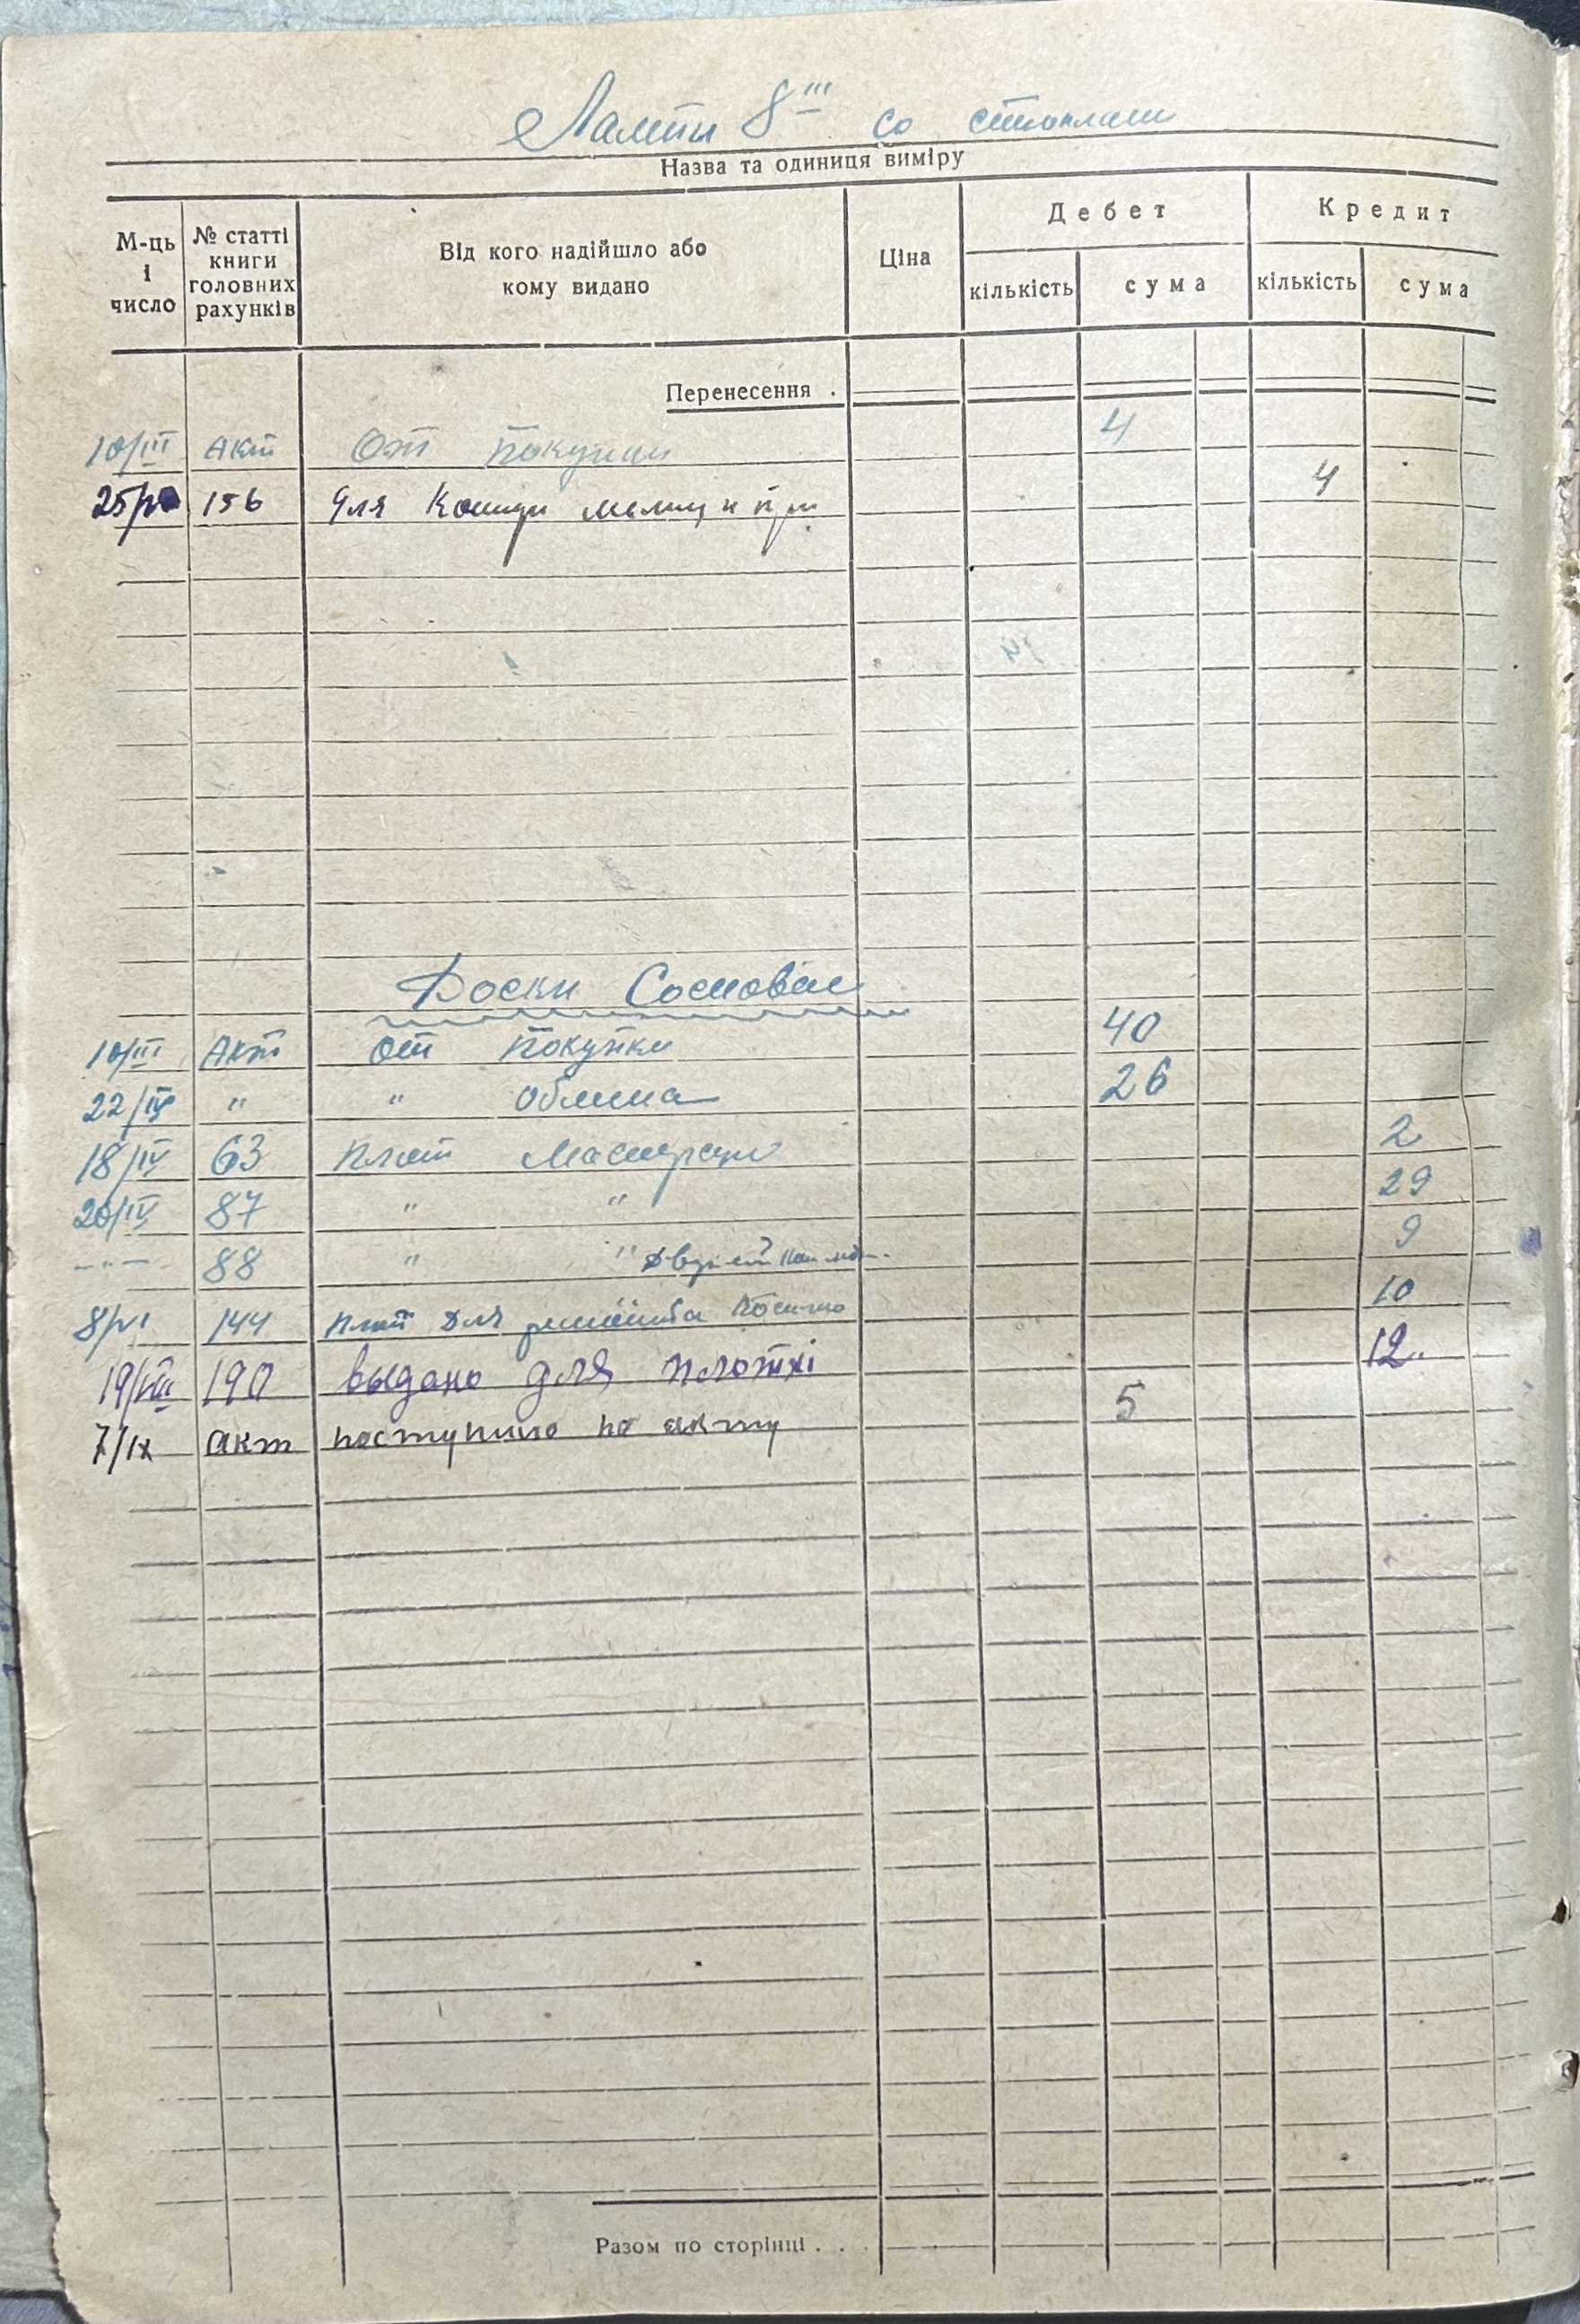 Лампы 8''' со стеклами
Назва та одиниця виміру
М-ць і число
№ статті книги головних рахунків
Від кого надійшло або кому видано
Ціна
Дебет
Кредит
кількість
сума
кількість
сума
Перенесення .
10/III Акт От покупки 4
25/ 156 Для 4
Доски Сосновые
10/III Акт от покупки 40
22/IV " " обмена 26
18/IV 63 Плот 2
20/IV 87 " " 29
—"— 88 " " 9
8/VI 144 плот для 10
19/VIII 190 выдано для 12.
7/IX акт поступило по акту 5
Разом по сторінці . . .